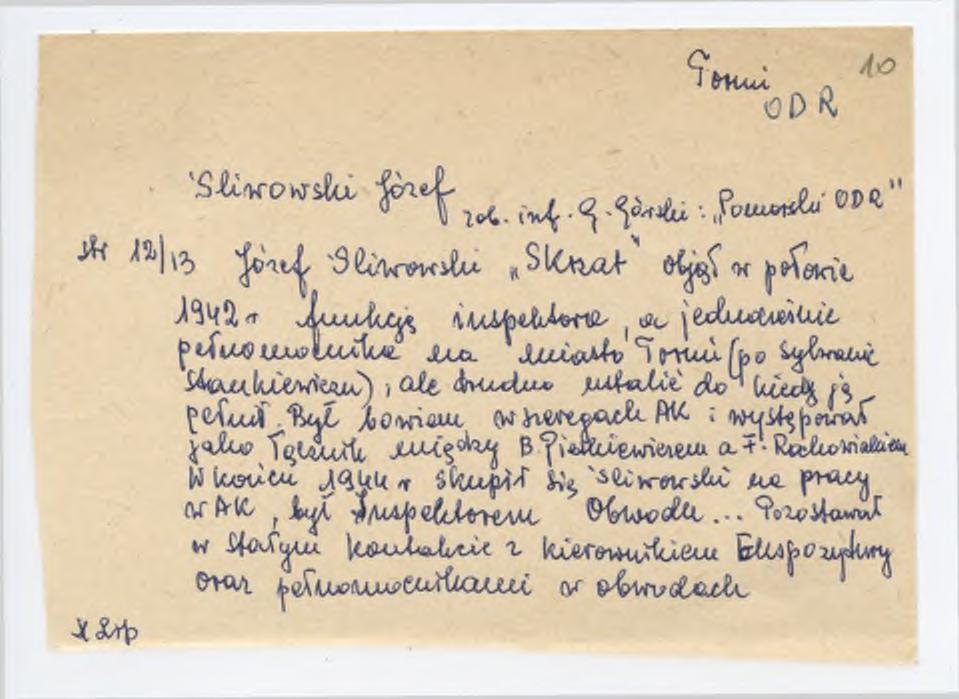 Toruń 10
ODR
Śliwowski Józef
zob. inf. G. Górski: „Pomorski ODR"
str 12/13 Józef Śliwowski „Skrzat" objął w połowie
1942 r funkcję inspektora, a jednocześnie
pełnomocnika na miasto Toruń (po Sylwanie
Stankiewiczu), ale trudno ustalić do kiedy ją
pełnił. Był bowiem w szeregach AK i występował
jako łącznik między B. Pietkiewiczem a F. Rachowiakiem
W końcu 1944 r skupił się Śliwowski na pracy
w AK, był Inspektorem Obwodu... Pozostawał
w stałym kontakcie z kierownikiem Ekspozytury
oraz pełnomocnikami w obwodach